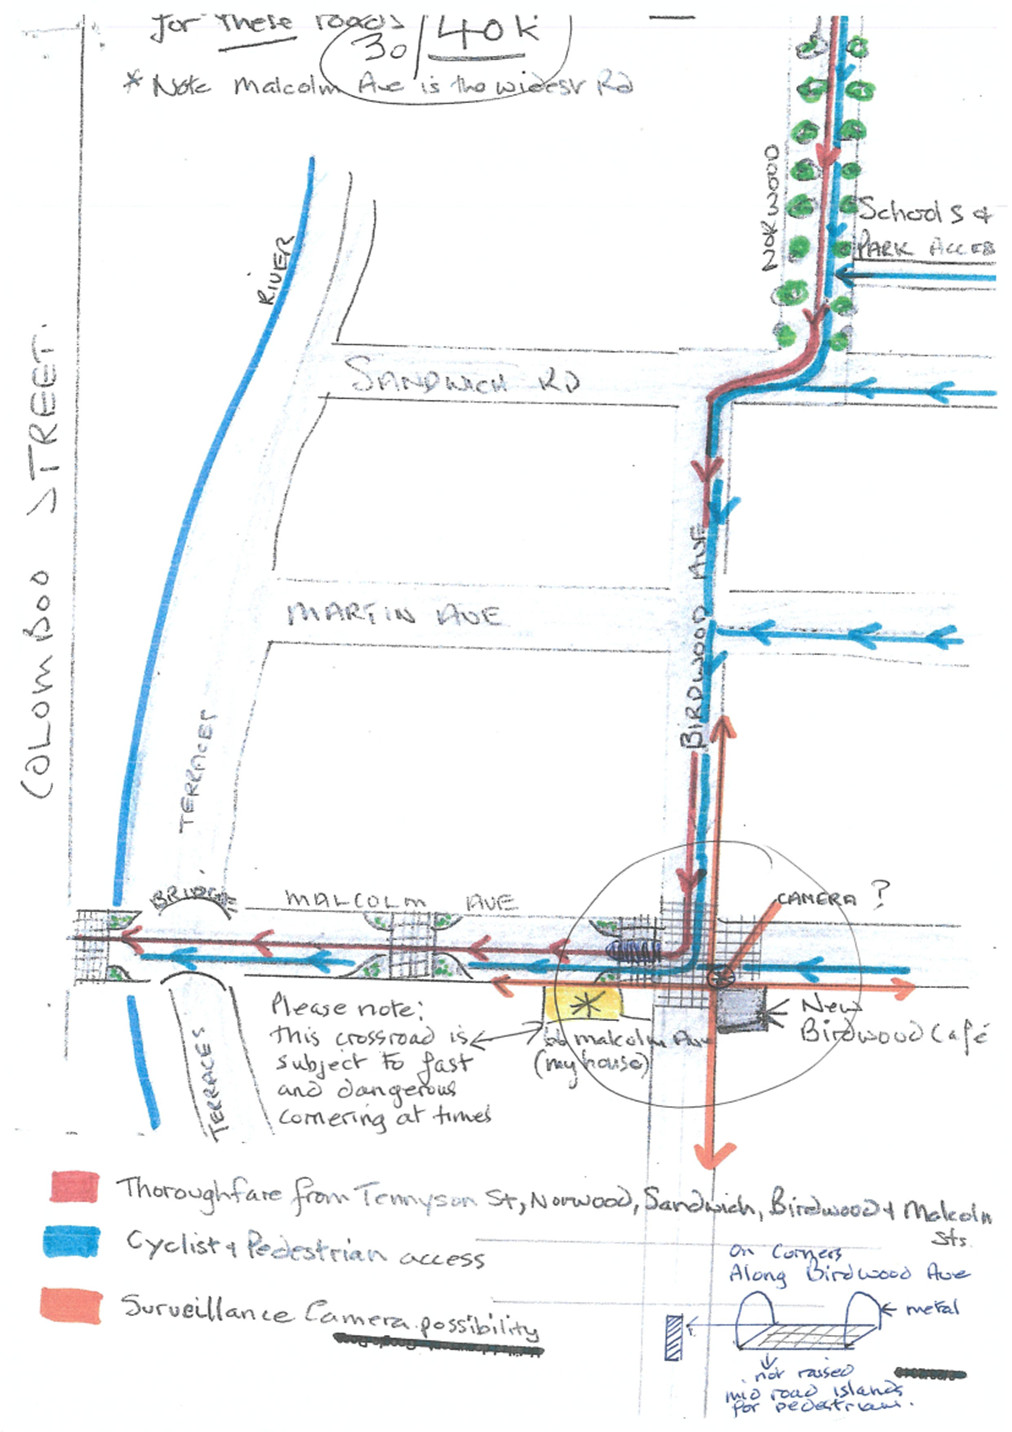 for these roads
30/40k
* Note Malcolm Ave is the widest Rd
NORWOOD
Schools +
PARK ACCES
RIVER
SANDWICH RD
COLOMBOO STREET.
MARTIN AVE
BIRDWOOD AVE
TERRACES
BRIDGE
MALCOLM AVE
CAMERA ?
Please note:
this crossroad is
subject to fast
and dangerous
cornering at times
66 malcolm Ave
(my house)
New
Birdwood Café
TERRACES
Thoroughfare from Tennyson St, Norwood, Sandwich, Birdwood + Malcolm
Sts.
Cyclist + Pedestrian access
Surveillance Camera possibility
On Corners
Along Birdwood Ave
metal
not raised
mid road islands
for pedestrians.